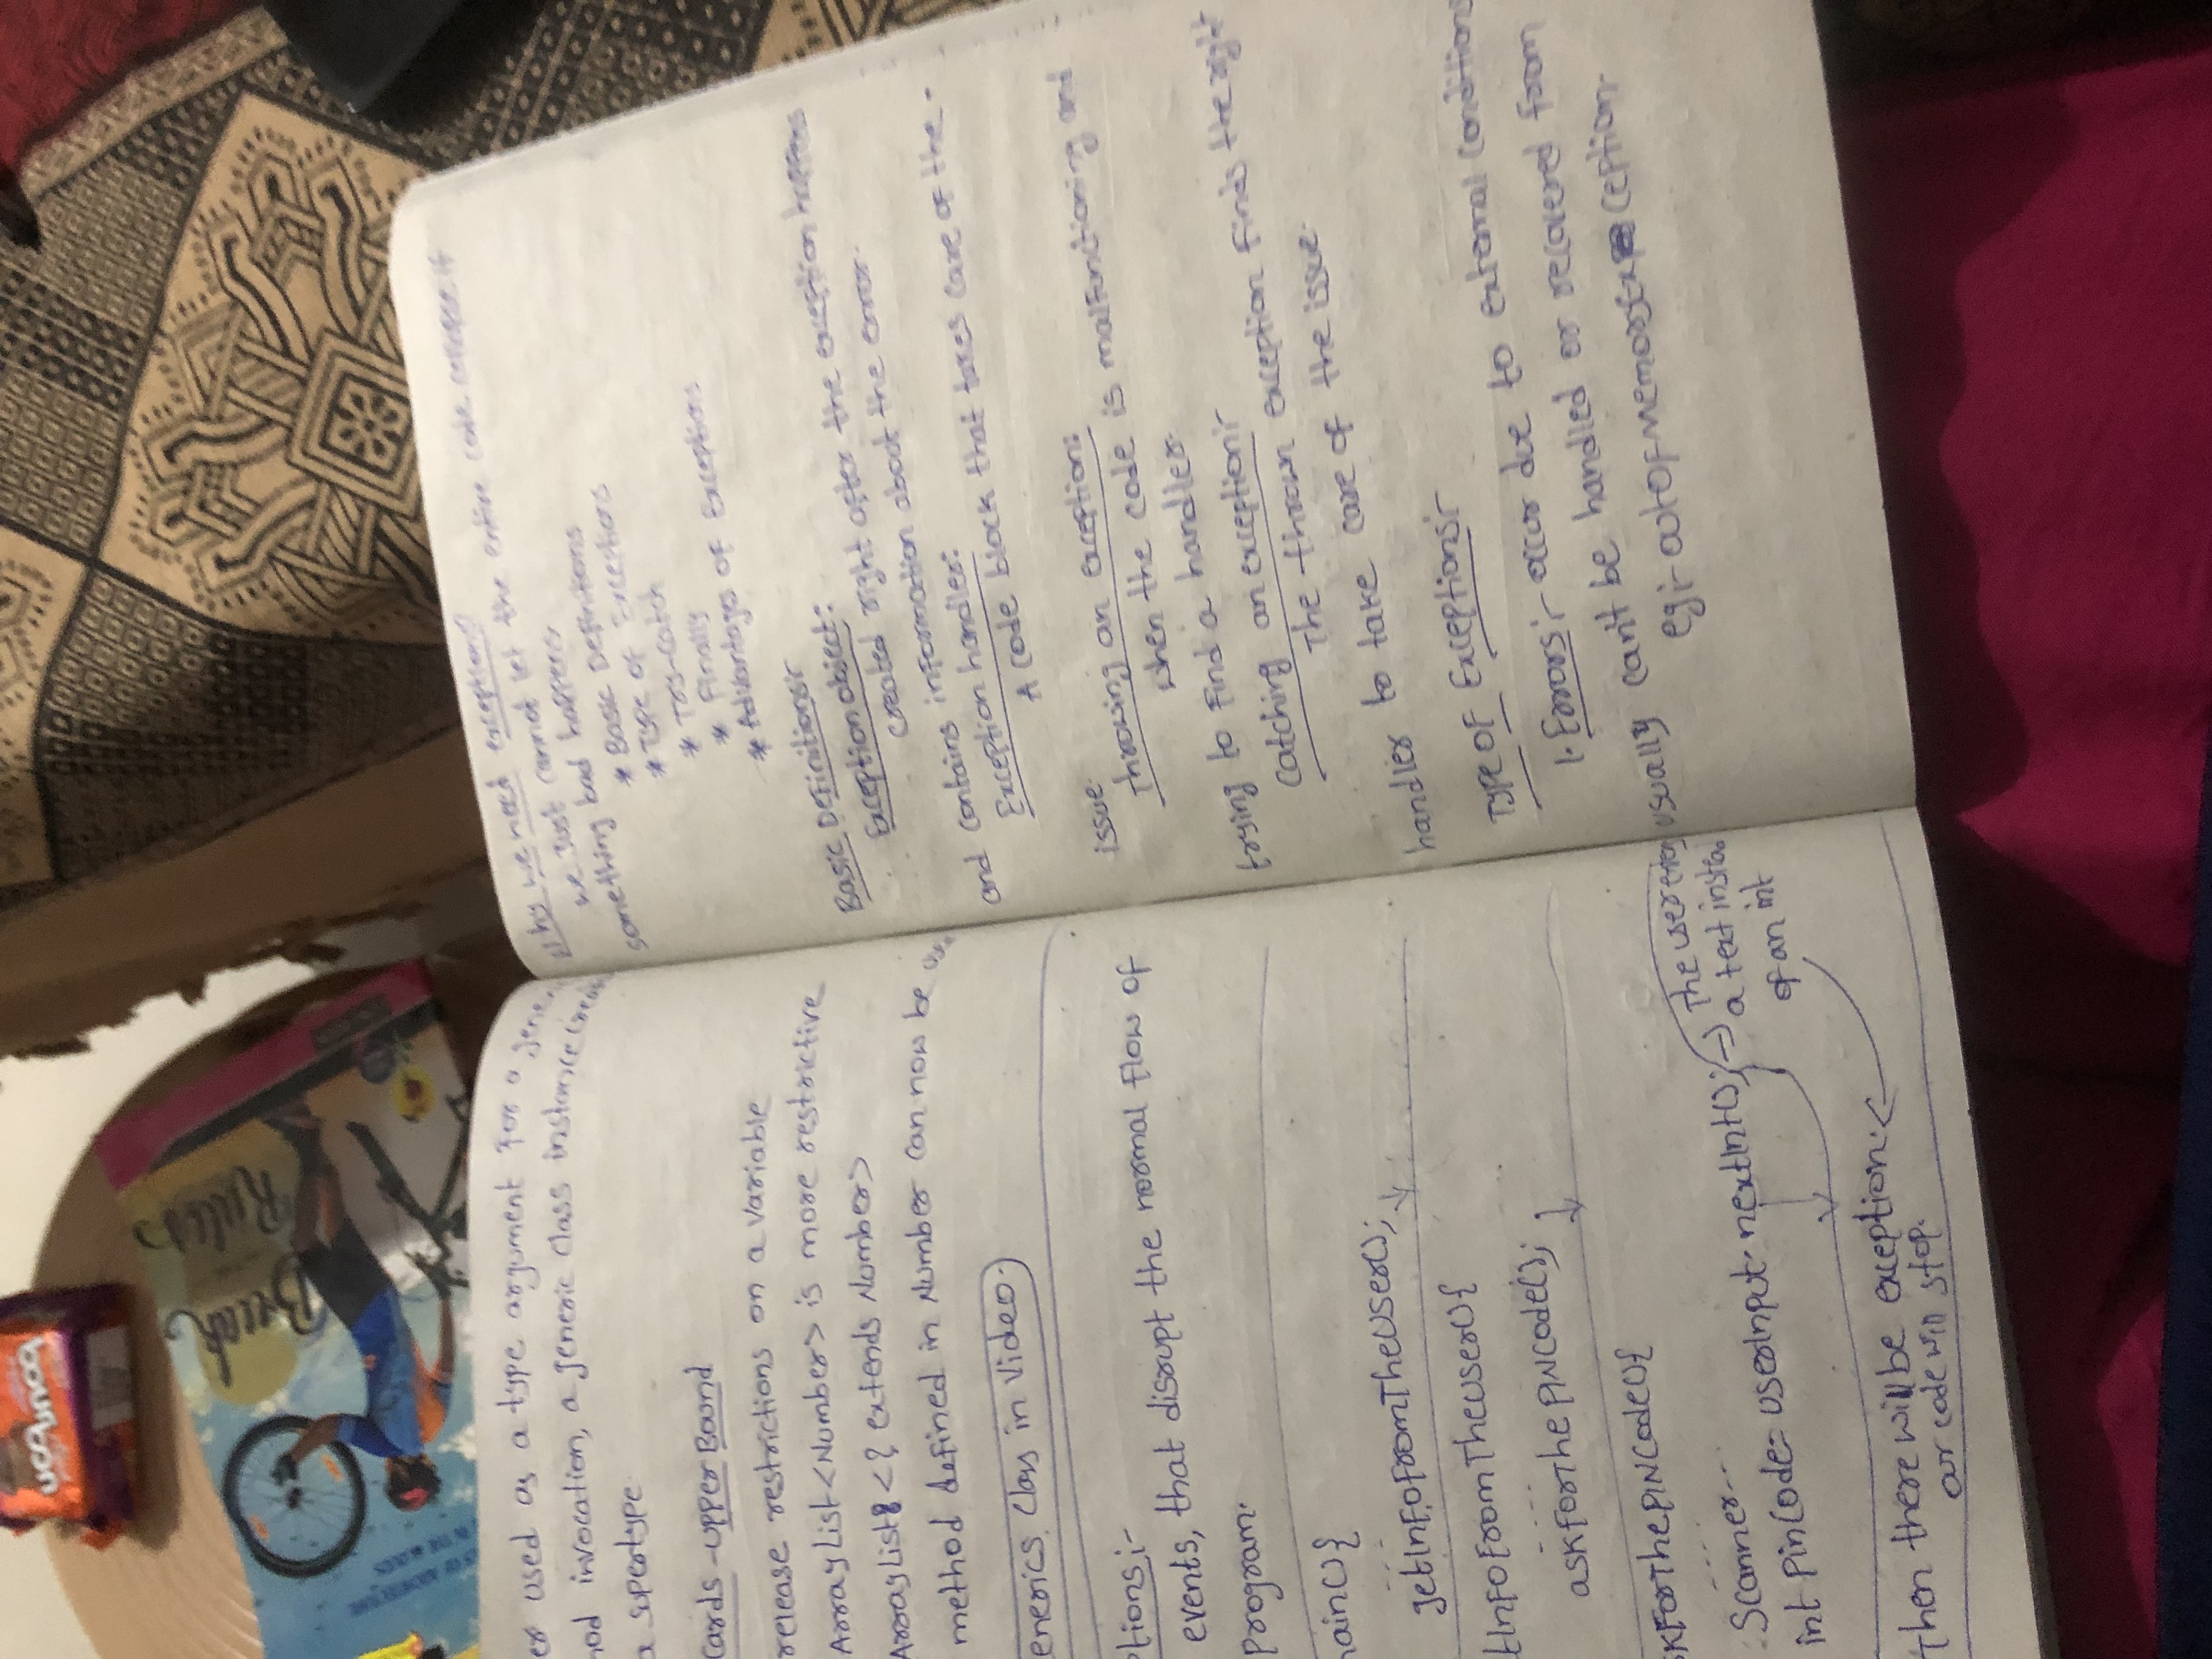 bourbon
Break
Rules
er used as a type argument for a gene
hod invocation, a generic class instance crea
a supertype.
Cards - Upper Bound
release restrictions on a variable
ArrayList<Number> is more restrictive
ArrayList <? extends Number>
method defined in Number can now be use
enerics class in Video.
ptions:-
events, that disrupt the normal flow of
program.
main(){
....
getInfoFromTheUser();
tInfoFromTheUser(){
....
askForThePINCode();
skForThePINCode(){
....
Scanner...
int pinCode= userInput.nextInt(); → The user enters
a text instead
of an int
Then there will be exception.
our code will stop.
Why we need exceptions?
we Just cannot let the entire code collapse if
something bad happens.
* Basic Definitions
* Type of Exceptions
* Try-Catch
* Finally
* Advantages of Exceptions
Basic Definitions:-
Exception object:
created right after the exception happens
and contains information about the error.
Exception handler:
A code block that takes care of the -
issue.
Throwing an exception:
when the code is malfunctioning and
trying to find a handler.
Catching an exception:-
The thrown exception finds the right
handler to take care of the issue.
Type of Exceptions:-
1. Errors:- occur due to external conditions
usually can't be handled or recovered from
eg:- OutOfMemoryException.